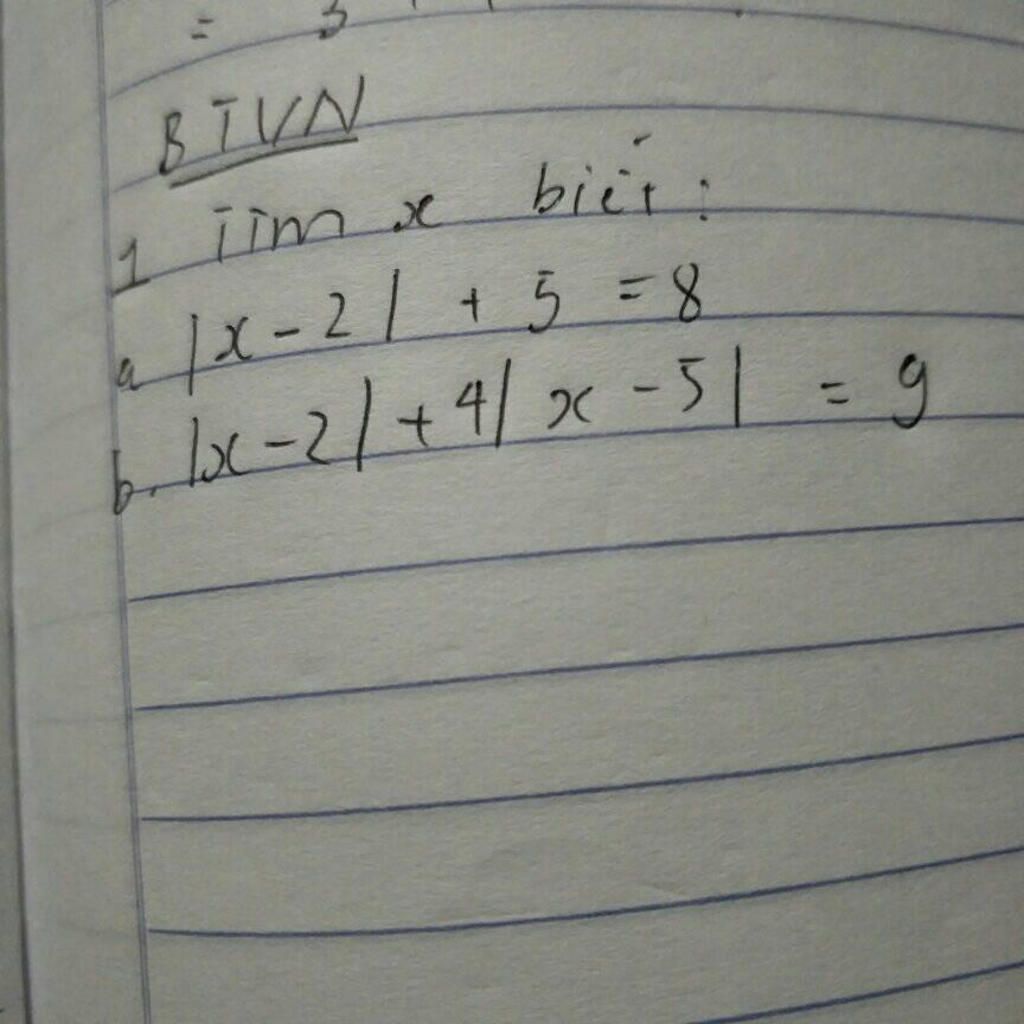 = 3
BTVN
1 Tìm x biết :
a |x - 2| + 5 = 8
b. |x - 2| + 4| x - 5| = 9